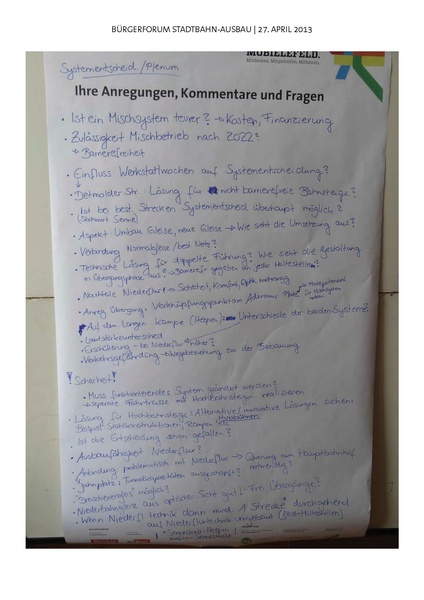 BÜRGERFORUM STADTBAHN-AUSBAU | 27. APRIL 2013
MOBIELEFELD.
Systementscheid. / Plenum
Ihre Anregungen, Kommentare und Fragen
• Ist ein Mischsystem teurer? → Kosten, Finanzierung
• Zulässigkeit Mischbetrieb nach 2022?
→ Barrierefreiheit
• Einfluss Werkstattwochen auf Systementscheidung?
• Detmolder Str.: Lösung für nicht barrierefreie Bahnsteige?
• Ist bei best. Strecken Systementscheid überhaupt möglich?
(Stichwort Senne)
• Aspekt: Umbau Gleise, neue Gleise → Wie sieht die Umsetzung aus?
• Verbindung Normalgleise / best. Netz?
• Technische Lösung für doppelte Führung? Wie sieht die Gestaltung
in Übergangsphase aus? → Barrierefr. gegeben an jeder Haltestelle?
• Nachteile Niederflur → Sicherheit, Komfort, Optik,
• Anreg. Übergang, Verknüpfungspunkt am Adenauer Platz
• Auf der Langen Kampe (Heepen): Unterschiede der beiden Systeme?
• Lautstärkeunterschied
• Erschütterung - bei Niederflur höher?
• Verkehrsgefährdung → Wegbeziehung zw. der Bebauung
! Sicherheit!
• Muss funktionierendes System geändert werden?
→ separate Fahrtrasse mit Hochbahnsteigen realisieren
• Lösung für Hochbahnsteige: Alternative / innovative Lösungen suchen:
Beispiel Stahlkonstruktionen, Rampen, etc.
• Ist die Entscheidung schon gefallen?
• Ausbaufähigkeit Niederflur?
• Anbindung problematisch mit Niederflur → Querung zum Hauptbahnhof
• Jahnplatz: Tunnelkapazitäten ausgeschöpft?
möglich?
• Niederbahngleis aus optischer Sicht gut!
• Wenn Niederfl. technik dann mind. 1 Strecke durchgehend
aus Niederflurtechnik